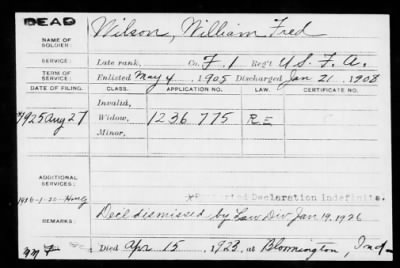 DEAD
Wilson, William Fred
NAME OF SOLDIER:
SERVICE: Late rank, Co. F. 1 Reg't U S. F. A.
TERM OF SERVICE: Enlisted May 4 1905 Discharged Jan 21 1908
DATE OF FILING. CLASS. APPLICATION NO. LAW. CERTIFICATE NO.
Invalid,
1925 Aug 27 Widow, 1236 775 R.E
Minor,
ADDITIONAL SERVICES:
Declaration Indefinite.
REMARKS: Decl dismissed by Law Div Jan 19, 1926
Died Apr 15, 1923, at Bloomington, Ind